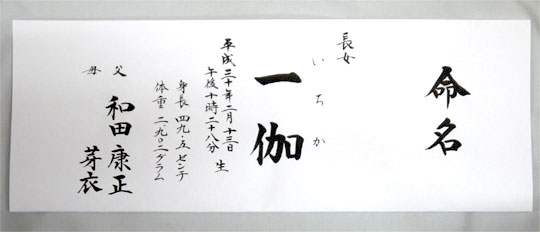 命名
長女
いちか
一伽
平成三十年二月十三日
午後十時二十八分 生
身長 四九・五センチ
体重 二、九〇二グラム
父 和田 康正
母 芽衣